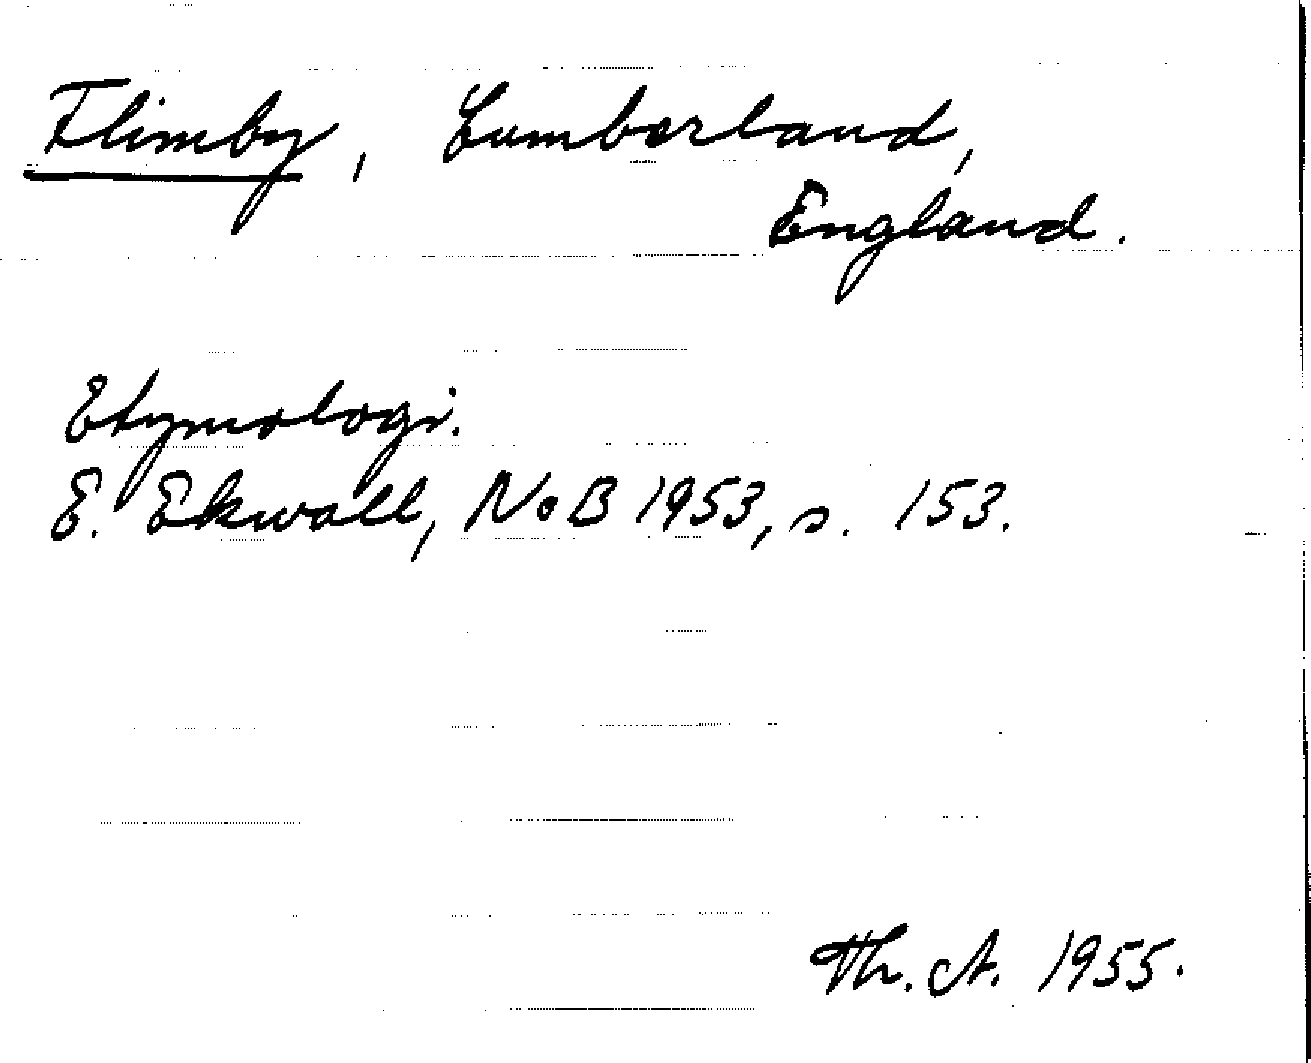 Flimby, Cumberland,
England.
Etymologi.
E. Ekwall, NoB 1953, s. 153.
Th. A. 1955.